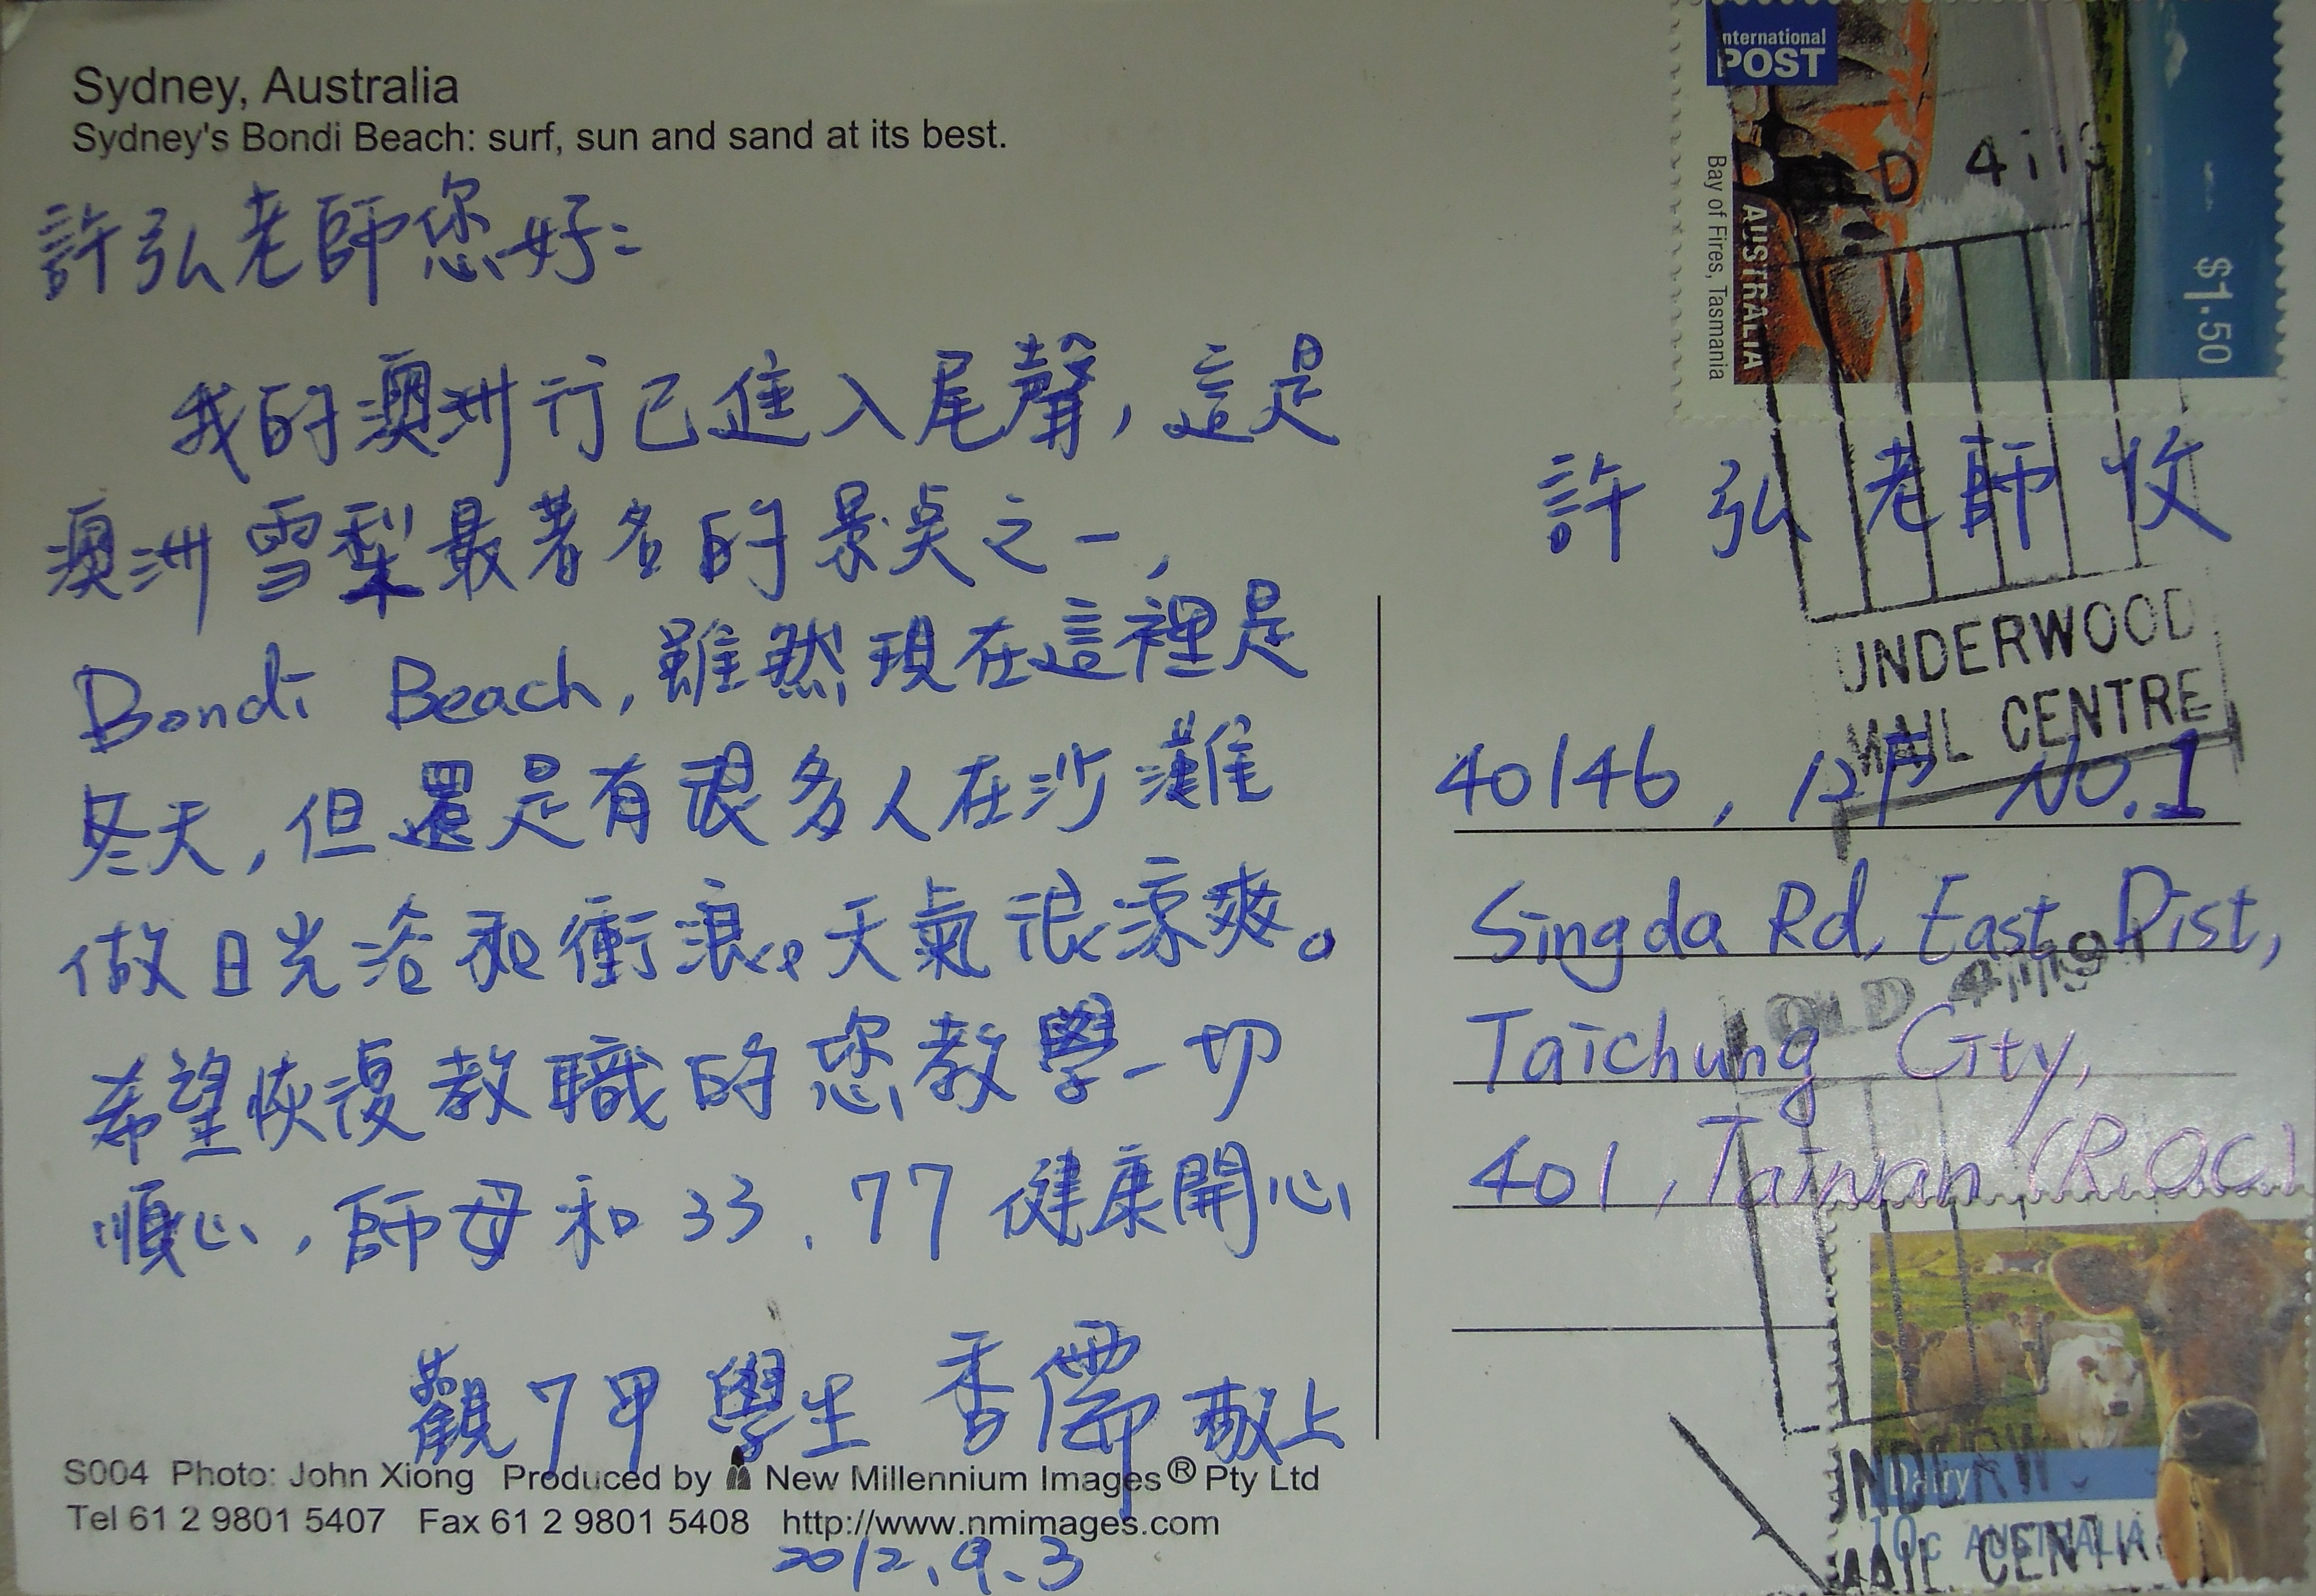 Sydney, Australia
Sydney's Bondi Beach: surf, sun and sand at its best.
許弘老師您好：
我的澳洲行已進入尾聲，這是
澳洲雪梨最著名的景点之一，
Bondi Beach, 雖然現在這裡是
冬天，但還是有很多人在沙灘
做日光浴和衝浪。天氣很涼爽。
希望恢復教職的您教學一切
順心，師母和33、77健康開心
觀7甲學生 香儒 敬上
S004 Photo: John Xiong Produced by New Millennium Images® Pty Ltd
Tel 61 2 9801 5407 Fax 61 2 9801 5408 http://www.nmimages.com
2012.9.3
International
POST
AUSTRALIA
Bay of Fires, Tasmania
$1.50
D 4119
許弘老師收
UNDERWOOD
MAIL CENTRE
40146, 12F No.1
Singda Rd, East Dist,
Taichung City,
401, Taiwan (R.O.C)
QLD 4119
Dairy
10c AUSTRALIA
UNDERW
MAIL CENT